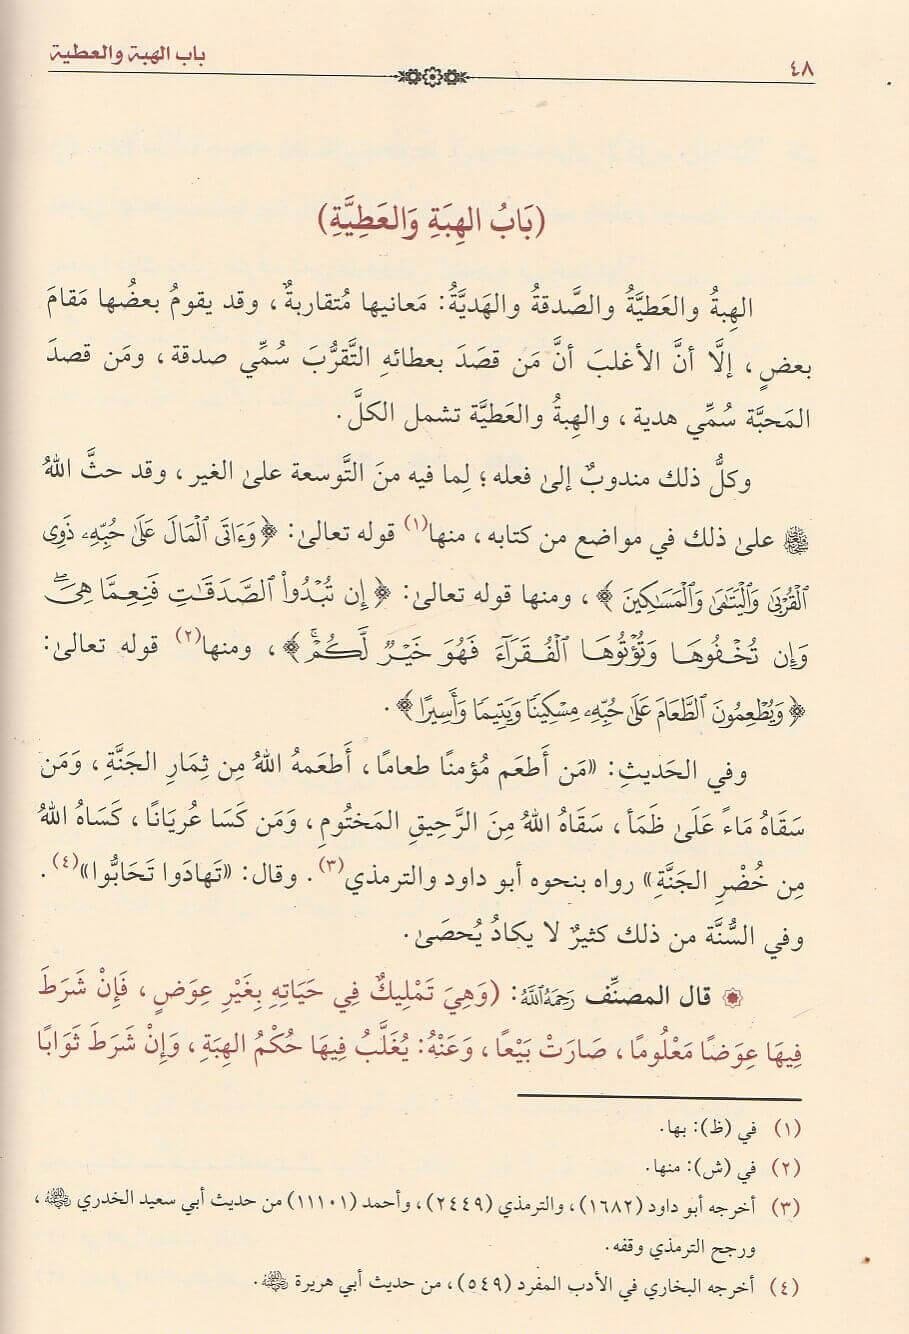 ٤٨ باب الهبة والعطية
(بَابُ الهِبَةِ وَالعَطِيَّةِ)
الهِبةُ والعَطيَّةُ والصَّدقةُ والهَديَّةُ: مَعانيها مُتقاربةٌ، وقد يقومُ بعضُها مَقامَ
بعضٍ، إلَّا أنَّ الأغلبَ أنَّ مَن قصَدَ بعطائهِ التَّقرُّبَ سُمِّي صدقة، ومَن قصدَ
المَحبَّة سُمِّي هدية، والهِبةُ والعَطيَّة تشمل الكلَّ.
وكلُّ ذلك مندوبٌ إلىٰ فعله؛ لِما فيه منَ التَّوسعة علىٰ الغير، وقد حثَّ اللهُ
علىٰ ذلك في مواضع من كتابه، منها(١) قوله تعالىٰ: ﴿وَءَاتَى ٱلْمَالَ عَلَىٰ حُبِّهِۦ ذَوِى
ٱلْقُرْبَىٰ وَٱلْيَتَٰمَىٰ وَٱلْمَسَٰكِينَ﴾، ومنها قوله تعالىٰ: ﴿إِن تُبْدُوا۟ ٱلصَّدَقَٰتِ فَنِعِمَّا هِىَۖ
وَإِن تُخْفُوهَا وَتُؤْتُوهَا ٱلْفُقَرَآءَ فَهُوَ خَيْرٌ لَّكُمْۚ﴾، ومنها(٢) قوله تعالىٰ:
﴿وَيُطْعِمُونَ ٱلطَّعَامَ عَلَىٰ حُبِّهِۦ مِسْكِينًا وَيَتِيمًا وَأَسِيرًا﴾.
وفي الحَديثِ: «مَن أَطعَم مُؤمنًا طعامًا، أَطعَمهُ اللهُ مِن ثِمَارِ الجَنَّةِ، وَمَن
سَقَاهُ مَاءً عَلَىٰ ظَمَأ، سَقَاهُ اللهُ مِنَ الرَّحِيقِ المَختُومِ، وَمَن كَسَا عُريَانًا، كَسَاهُ اللهُ
مِن خُضْرِ الجَنَّةِ» رواه بنحوه أبو داود والترمذي(٣). وقال: «تَهادَوا تَحَابُّوا»(٤).
وفي السُّنَّة من ذلك كثيرٌ لا يكادُ يُحصَىٰ.
قال المصنِّف رَحِمَهُ ٱللَّهُ: (وَهِيَ تَمْلِيكٌ فِي حَيَاتِهِ بِغَيْرِ عِوَضٍ، فَإِنْ شَرَطَ
فِيهَا عِوَضًا مَعْلُومًا، صَارَتْ بَيْعًا، وَعَنْهُ: يُغَلَّبُ فِيهَا حُكْمُ الهِبَةِ، وَإِنْ شَرَطَ ثَوَابًا
(١) في (ظ): بها.
(٢) في (ش): منها.
(٣) أخرجه أبو داود (١٦٨٢)، والترمذي (٢٤٤٩)، وأحمد (١١١٠١) من حديث أبي سعيد الخدري رضي الله عنه،
ورجح الترمذي وقفه.
(٤) أخرجه البخاري في الأدب المفرد (٥٤٩)، من حديث أبي هريرة رضي الله عنه.